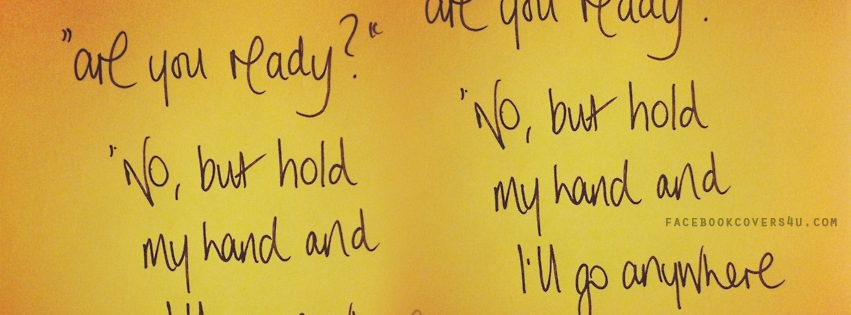 "are you ready?"
"No, but hold
my hand and
are you ready?
"No, but hold
my hand and
I'll go anywhere
FACEBOOKCOVERS4U.COM